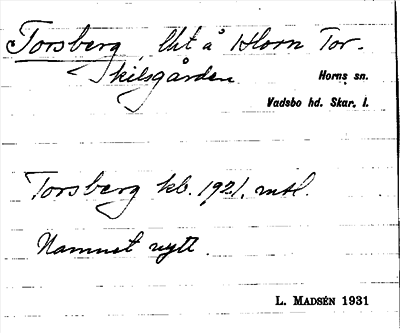 Torsberg, lht å Horn Tor-
Skilsgården
Horns sn.
Vadsbo hd. Skar. l.
Torsberg kb. 1921. mtl.
Namnet nytt.
L. MADSÉN 1931